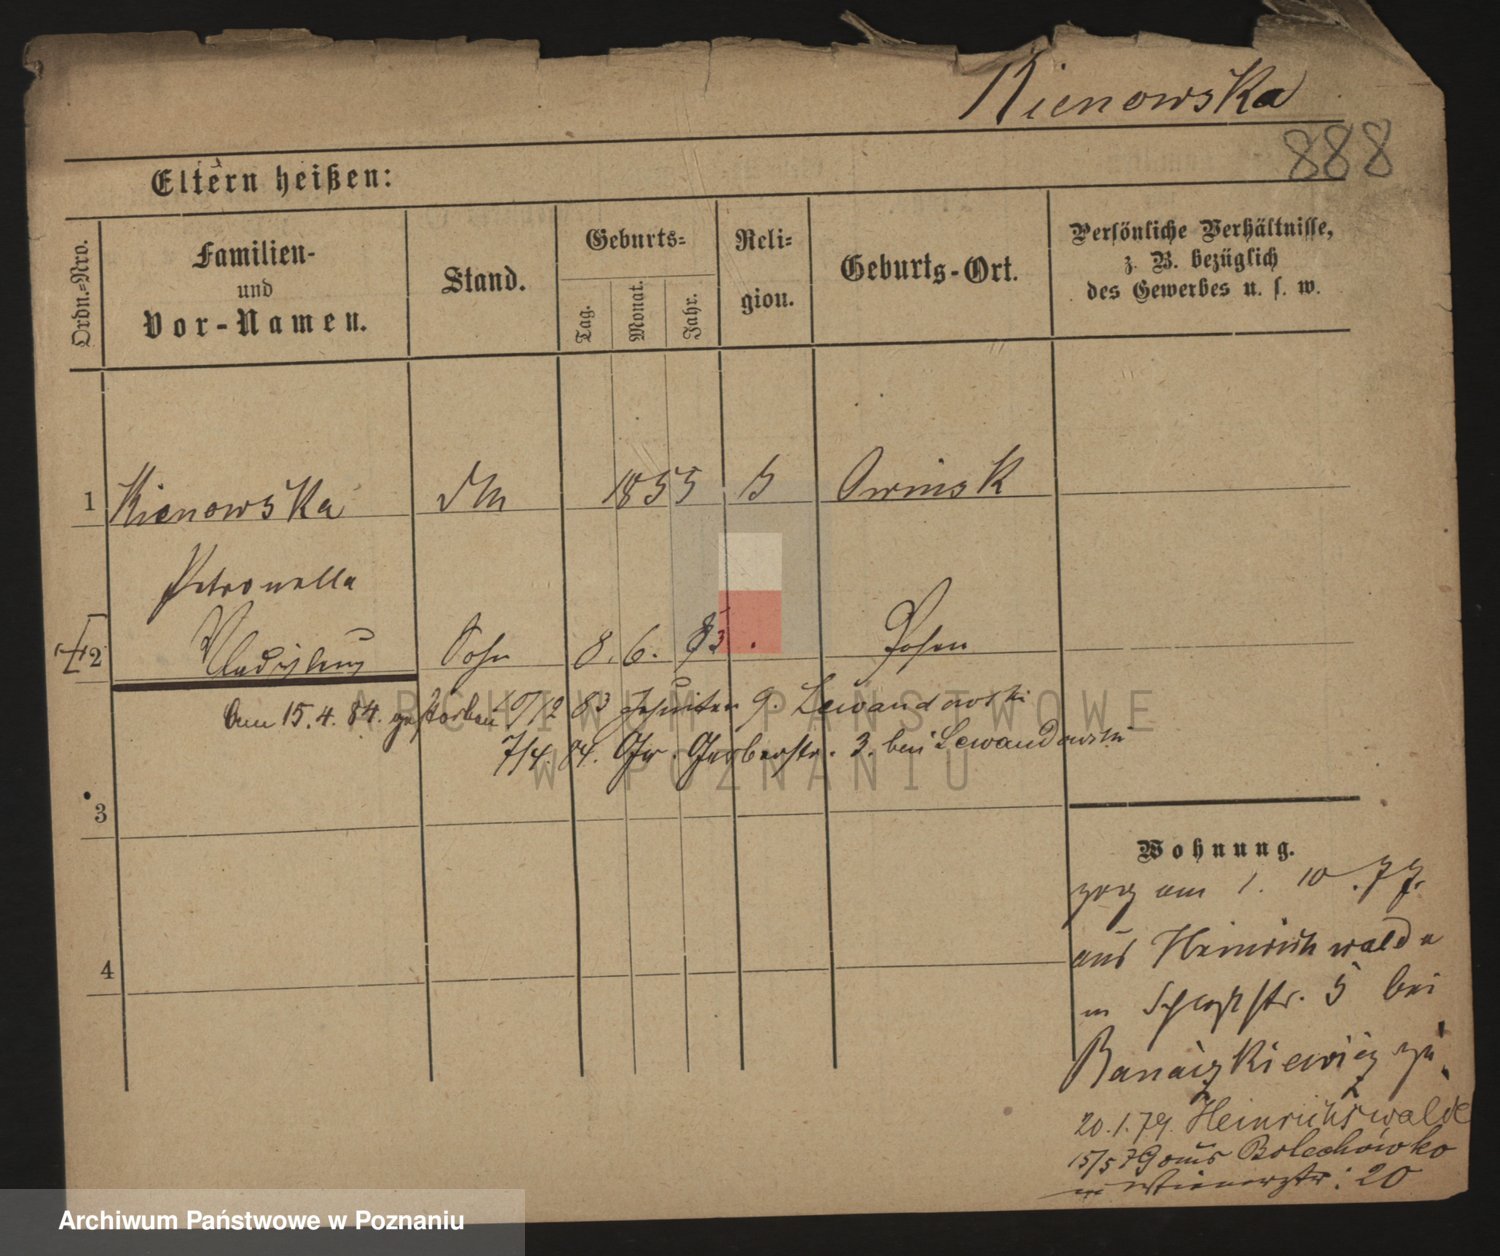 Kienowska
888
Eltern heißen:
Ordn.-Nro.
Familien-
und
Vor-Namen.
Stand.
Geburts-
Tag.
Monat.
Jahr.
Reli-
gion.
Geburts-Ort.
Persönliche Verhältnisse,
z. B. bezüglich
des Gewerbes u. s. w.
1 Kienowska 1855 Owinsk
Petronella
2 Sohn 8. 6. 83. Posen
Am 15.4.84. gestorben /12 83 Jesuiten 9. Lewandowski
7/4. 84. Gr. Gerberstr. 3. bei Lewandowski
3
4
Wohnung.
zog am 1. 10. 77.
aus Heinrichswalde
n. 5 bei
Banaszkiewicz zu.
20.1.79. Heinrichswalde
15/5 79 aus Bolechówko
20
ARCHIWUM PAŃSTWOWE
W POZNANIU
Archiwum Państwowe w Poznaniu